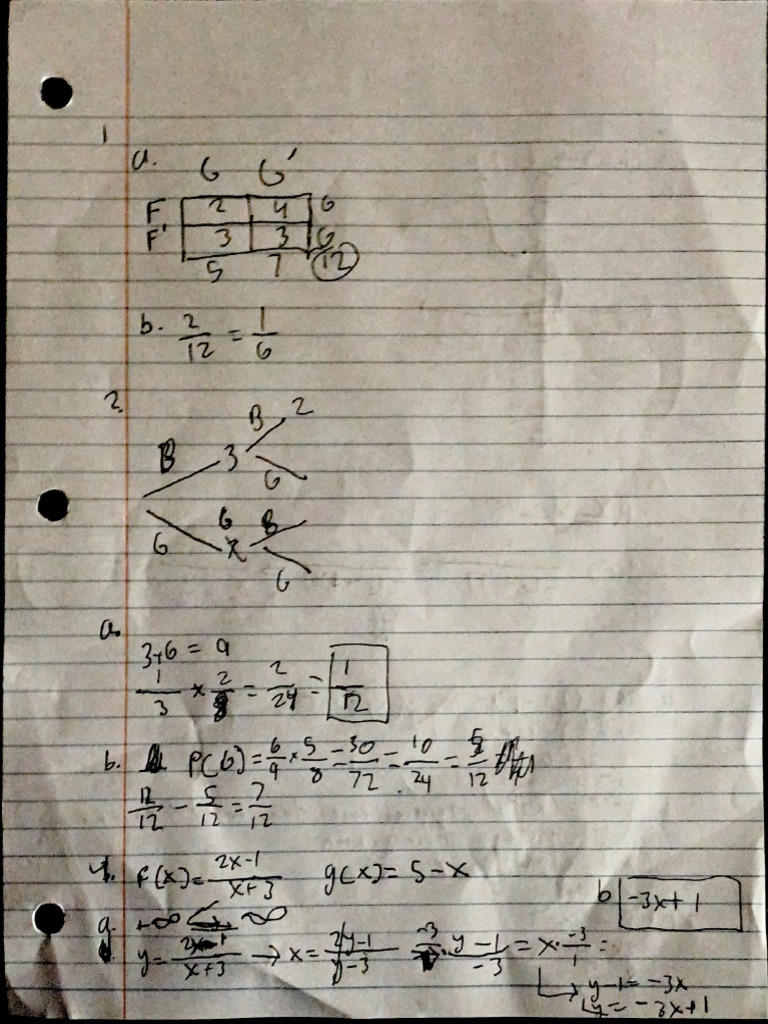 1
a. G G'
F 2 4 6
F' 3 3 6
5 7 12
b. 2/12 = 1/6
2.
B 3 B 2
G
G 6 B
G
a.
3+6 = 9
1/3 × 2/8 = 2/24 = 1/12
b. P(G) = 6/9 × 5/8 = 30/72 = 10/24 = 5/12
12/12 - 5/12 = 7/12
4. f(x) = 2x-1/x+3 g(x) = 5-x
a. +∞ ∞
b -3x+1
y = 2x-1/x+3 → x = 2y-1/y-3 -3 · y-1/-3 = x · -3/1 =
y-1 = -3x
y = -3x+1